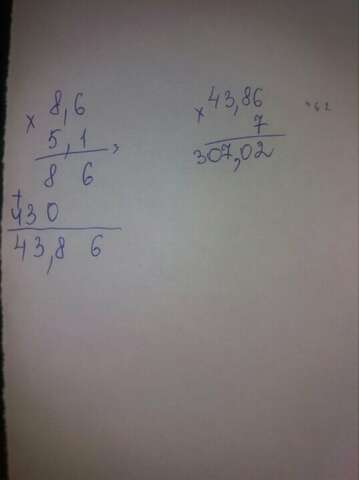 8,6
× 5,1
8 6
+
430
43,8 6
43,86
× 7
307,02